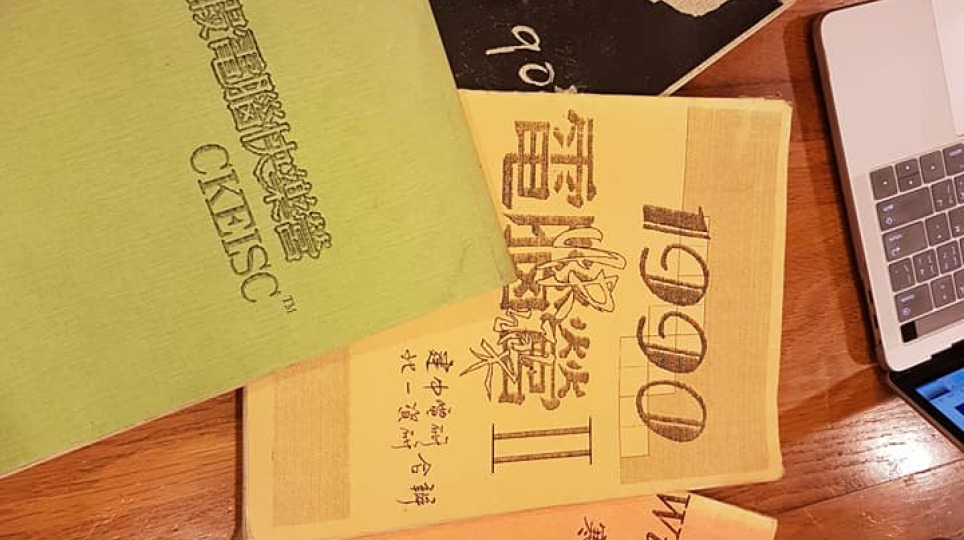 電腦快樂營
CKEISC™
90
1990
電腦快樂營 II
建中電研
北一資研 合辦
寒